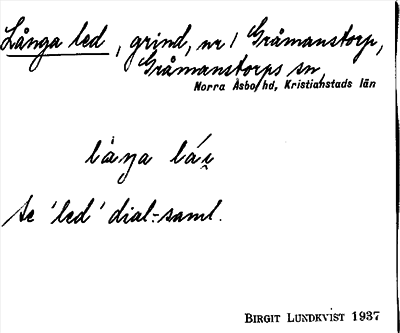 Långa led, grind, nr 1 Gråmanstorp,
Gråmanstorps sn,
Norra Åsbo hd, Kristianstads län
se 'led' dial-saml.
BIRGIT LUNDKVIST 1937